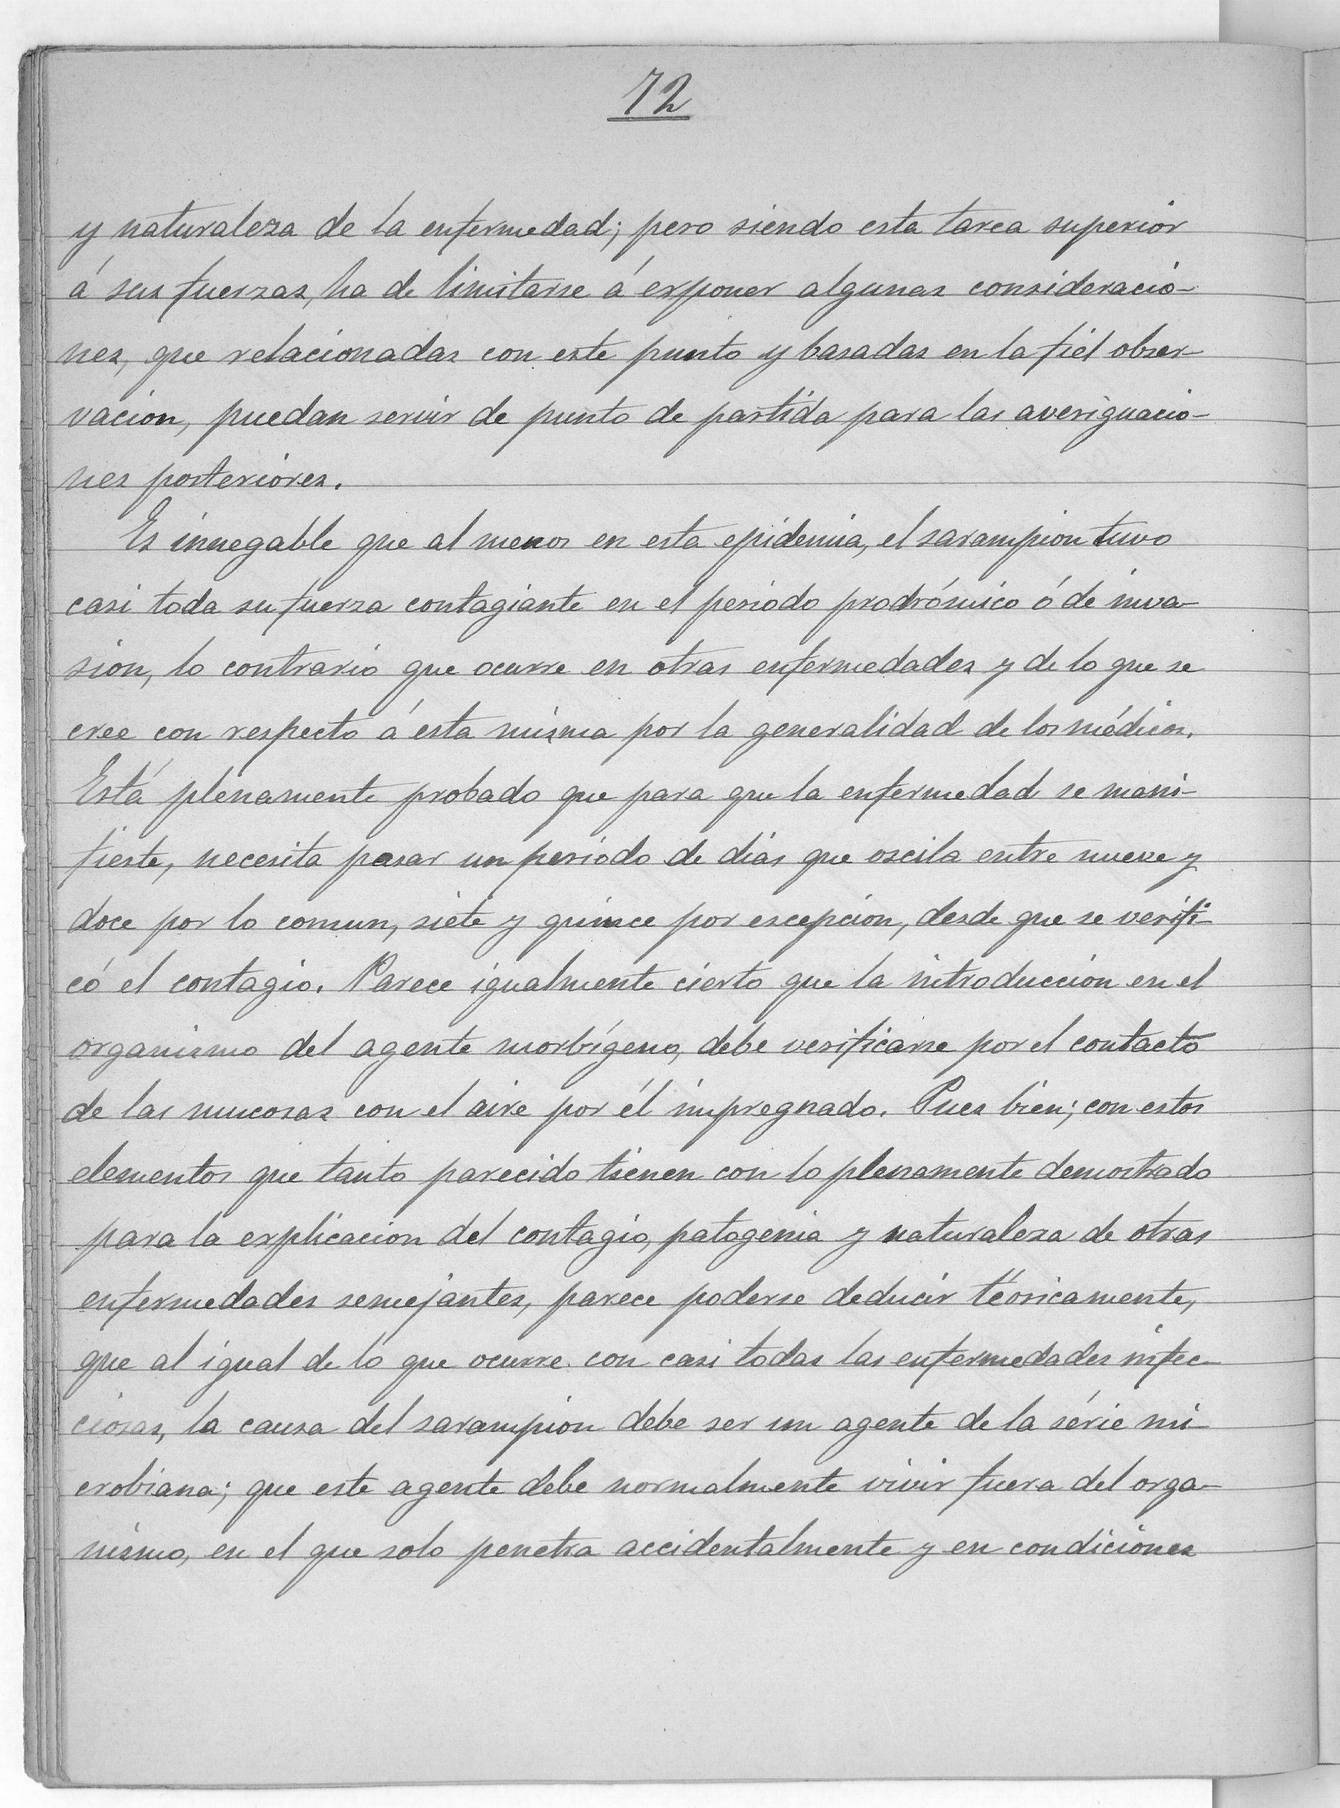 72
y naturaleza de la enfermedad; pero siendo esta tarea superior
á sus fuerzas, ha de limitarse á exponer algunas consideracio-
nes, que relacionadas con este punto y basadas en la fiel obser-
vacion, puedan servir de punto de partida para las averiguacio-
nes posteriores.
Es innegable que al menos en esta epidemia, el sarampion tuvo
casi toda su fuerza contagiante en el periodo prodrómico ó de inva-
sion, lo contrario que ocurre en otras enfermedades y de lo que se
cree con respecto á esta misma por la generalidad de los médicos.
Está plenamente probado que para que la enfermedad se mani-
fieste, necesita pasar un periodo de dias que oscila entre nueve y
doce por lo comun, siete y quince por escepcion, desde que se verifi-
có el contagio. Parece igualmente cierto que la introduccion en el
organismo del agente morbígeno, debe verificarse por el contacto
de las mucosas con el aire por él impregnado. Pues bien; con estos
elementos que tanto parecido tienen con lo plenamente demostrado
para la explicacion del contagio, patogenia y naturaleza de otras
enfermedades semejantes, parece poderse deducir téoricamente,
que al igual de lo que ocurre con casi todas las enfermedades infec-
ciosas, la causa del sarampion debe ser un agente de la série mi
crobiana; que este agente debe normalmente vivir fuera del orga-
nismo, en el que solo penetra accidentalmente y en condiciones